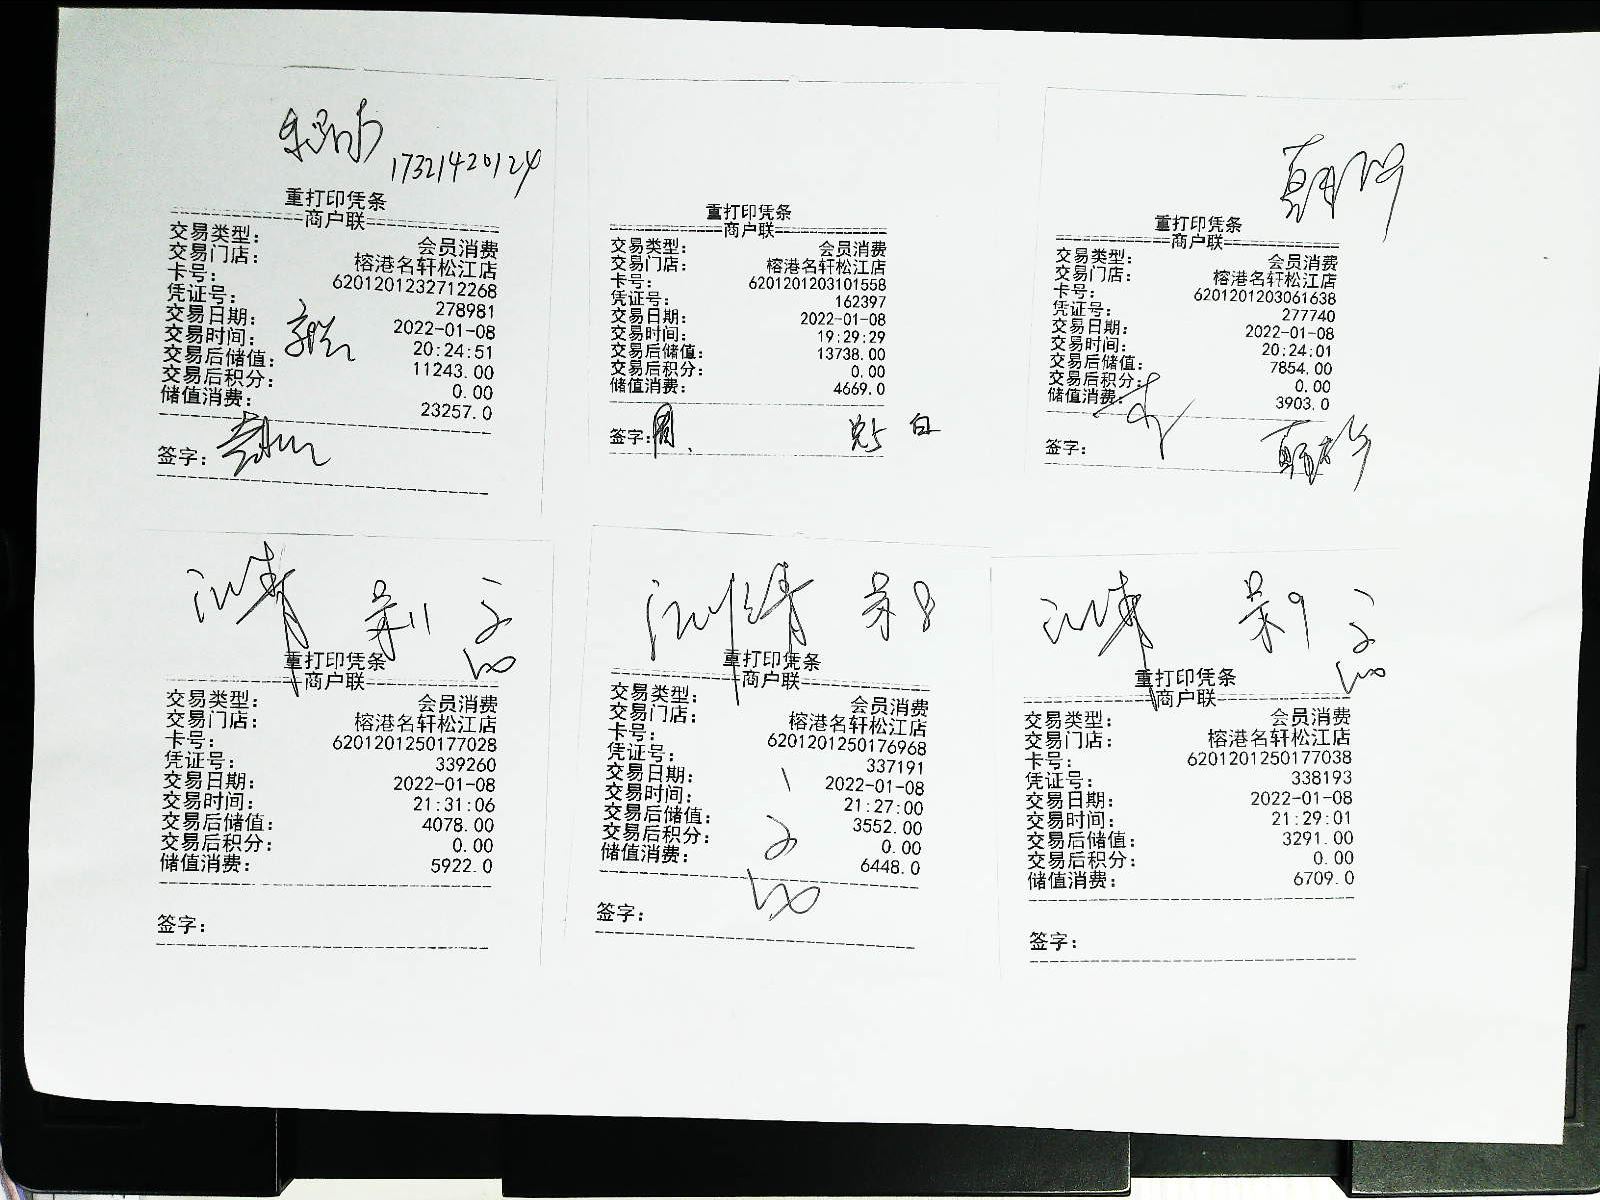 17321420124
重打印凭条
商户联
交易类型： 会员消费
交易门店： 榕港名轩松江店
卡号： 6201201232712268
凭证号： 278981
交易日期： 2022-01-08
交易时间： 20:24:51
交易后储值： 11243.00
交易后积分： 0.00
储值消费： 23257.0
签字：
重打印凭条
商户联
交易类型： 会员消费
交易门店： 榕港名轩松江店
卡号： 6201201203101558
凭证号： 162397
交易日期： 2022-01-08
交易时间： 19:29:29
交易后储值： 13738.00
交易后积分： 0.00
储值消费： 4669.0
签字：
重打印凭条
商户联
交易类型： 会员消费
交易门店： 榕港名轩松江店
卡号： 6201201203061638
凭证号： 277740
交易日期： 2022-01-08
交易时间： 20:24:01
交易后储值： 7854.00
交易后积分： 0.00
储值消费： 3903.0
签字：
重打印凭条
商户联
交易类型： 会员消费
交易门店： 榕港名轩松江店
卡号： 6201201250177028
凭证号： 339260
交易日期： 2022-01-08
交易时间： 21:31:06
交易后储值： 4078.00
交易后积分： 0.00
储值消费： 5922.0
签字：
重打印凭条
商户联
交易类型： 会员消费
交易门店： 榕港名轩松江店
卡号： 6201201250176968
凭证号： 337191
交易日期： 2022-01-08
交易时间： 21:27:00
交易后储值： 3552.00
交易后积分： 0.00
储值消费： 6448.0
签字：
重打印凭条
商户联
交易类型： 会员消费
交易门店： 榕港名轩松江店
卡号： 6201201250177038
凭证号： 338193
交易日期： 2022-01-08
交易时间： 21:29:01
交易后储值： 3291.00
交易后积分： 0.00
储值消费： 6709.0
签字：